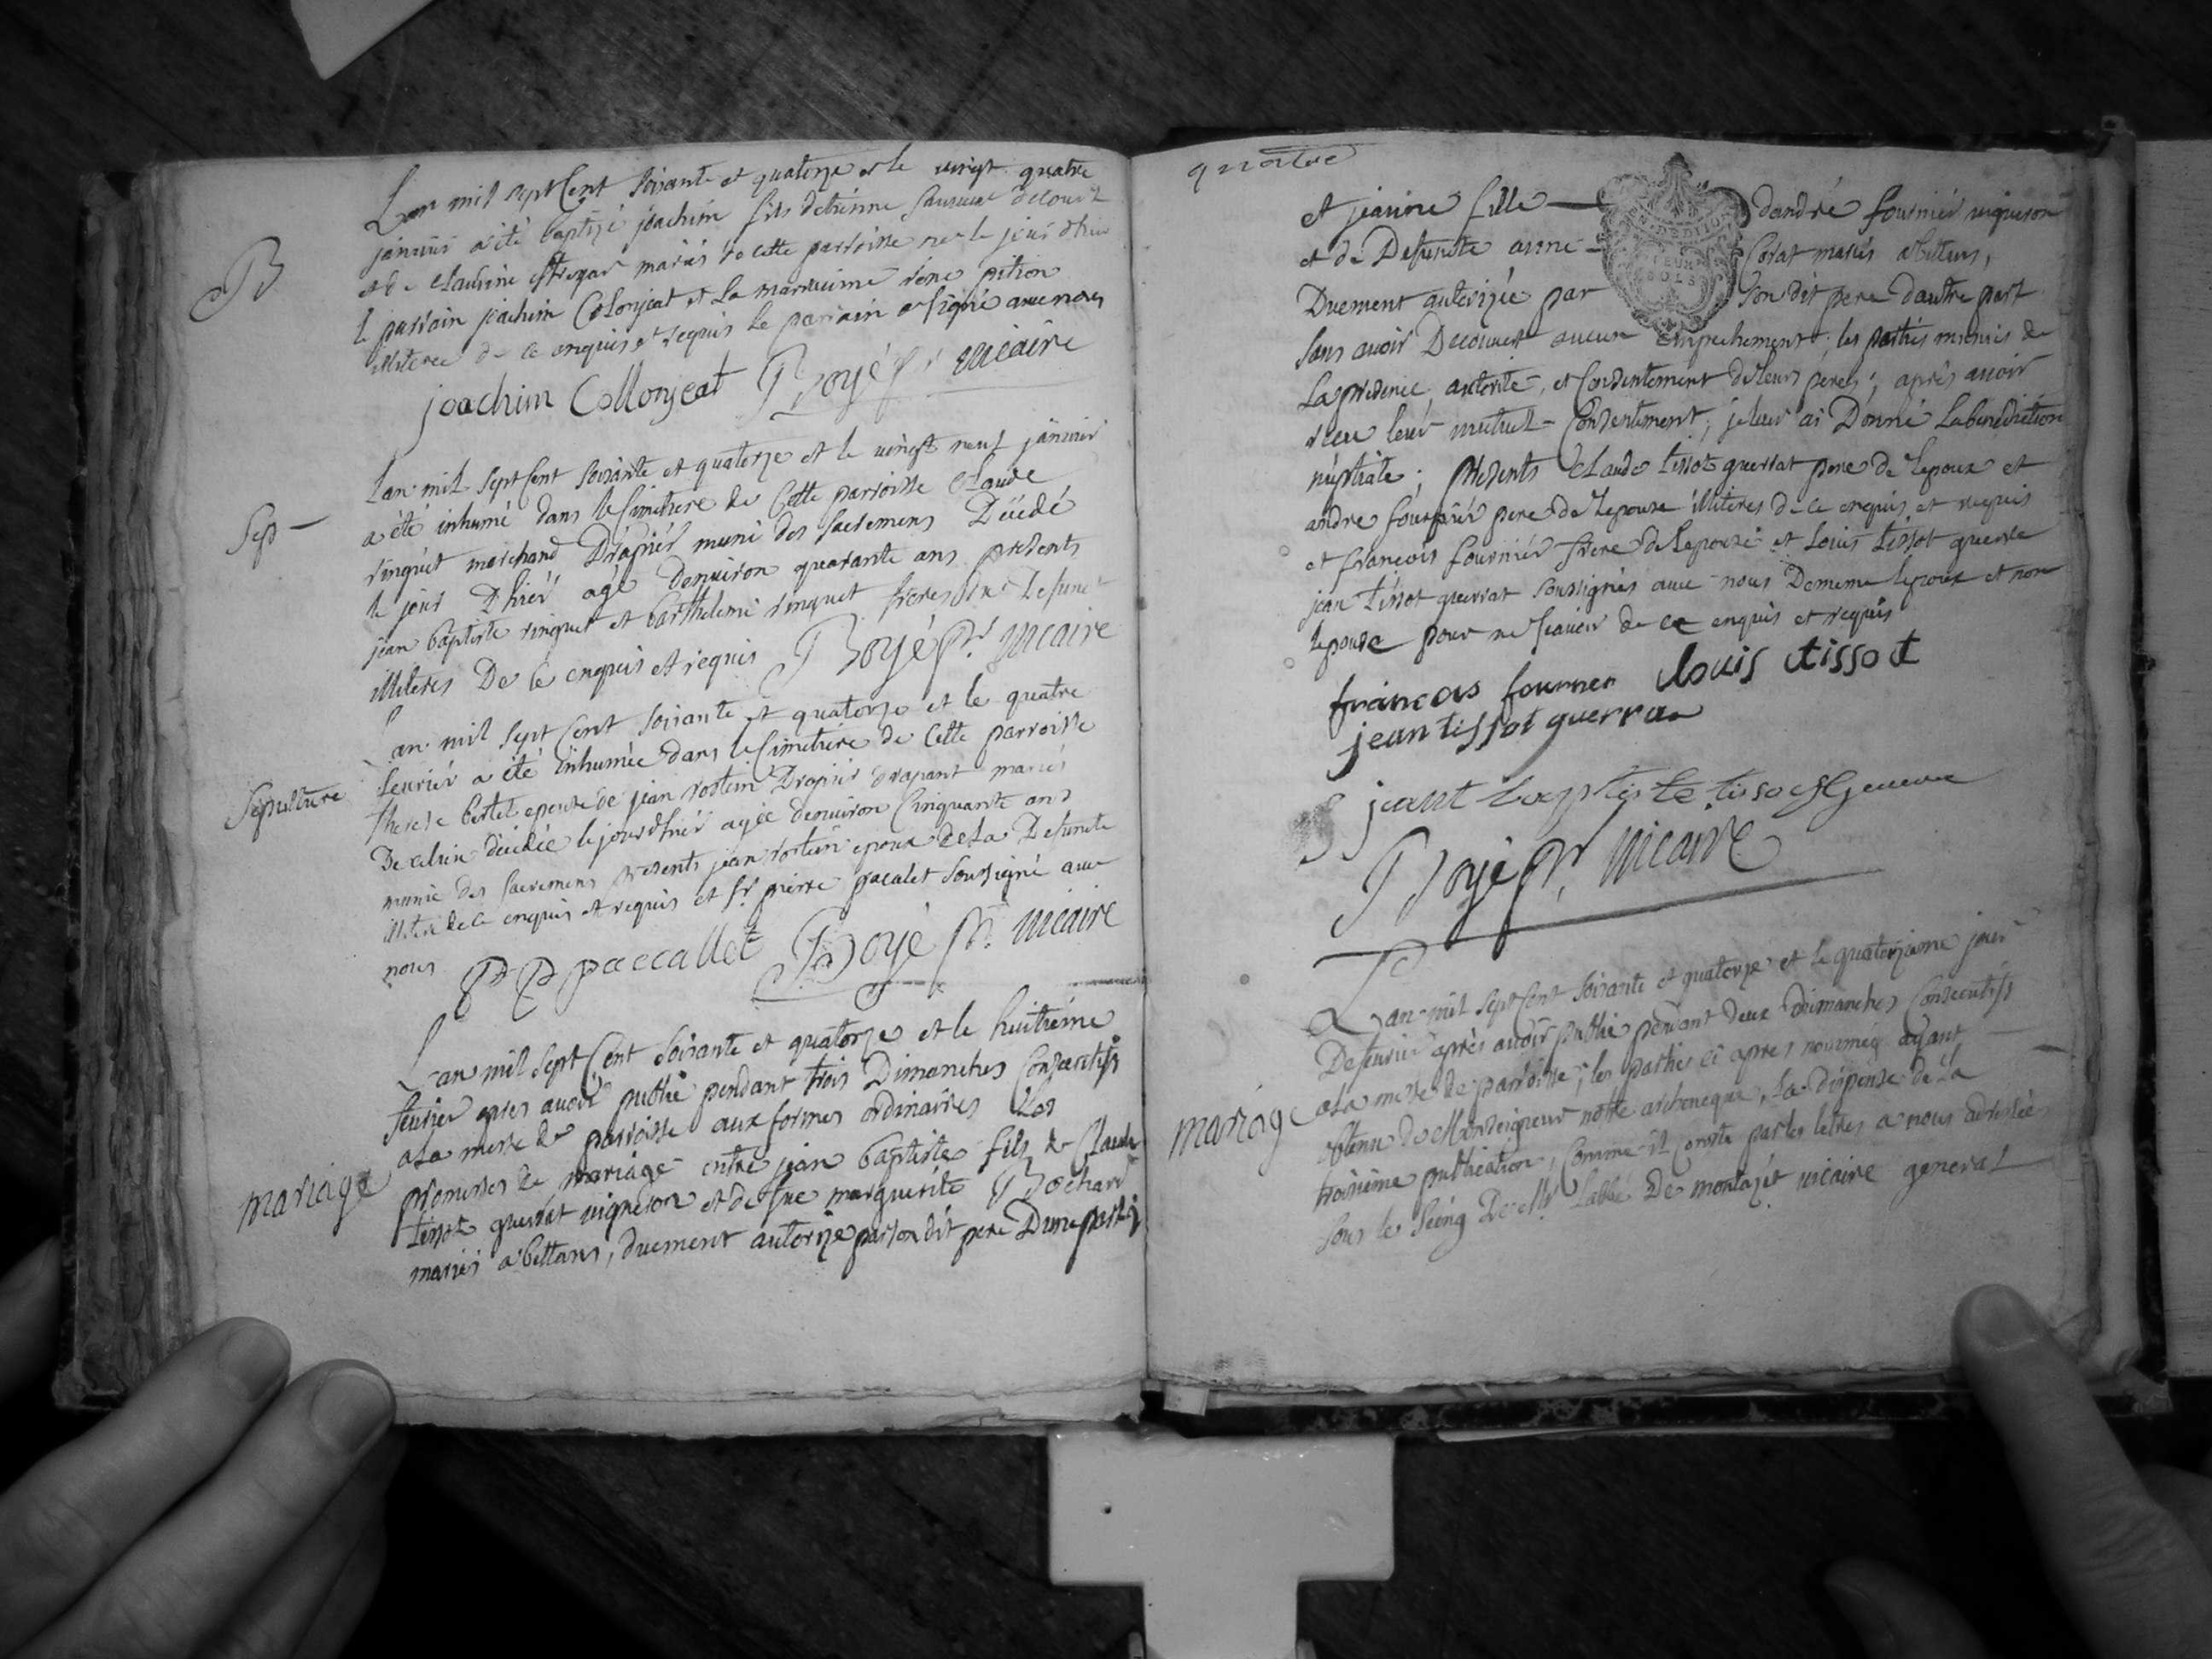 B
Lan mil sept Cent soixante et quatorze et le vingt quatre
janvier a été baptizé joachim fils detienne
et de Claudine mariés de cette parroisse né le jour dhier
le parrain joachim Colonjeat et La marraine rene pition
illiterée de ce enquis et requis le parrain a signé avec nous
joachim Collonjeat Boyé pr vicaire
Sep
Lan mil sept Cent soixante et quatorze et le vingt neuf janvier
a été inhumé dans le simetiere de Cette parroisse Claude
rinquet marchand Drapier muni des sacremens Décédé
le jour Dhier agé denviron quarante ans presents
jean baptiste rinquet et barthelemi rinquet freres du Defunct
illiterés De ce enquis et requis Boyé pr. vicaire
Sepulture
Lan mil sept Cent soixante et quatorze et le quatre
fevrier a été inhumée dans le simetiere de Cette parroisse
therese bertet epouse de jean rostein Drapier drapant mariés
De celieu décédée le jour dhier agée denviron Cinquante ans
munie des sacremens presents jean rostein epoux de La Defuncte
illiteré de ce enquis et requis et sr pierre pacalet soussigné avec
nous PP paccallet Boyé pr. vicaire
mariage
Lan mil sept Cent soixante et quatorze et le huitième
fevrier apres avoir publié pendant trois Dimanches Consecutifs
a La messe de parroisse aux formes ordinaires Les
promesses de mariage entre jean baptiste fils de Claude
tissot guerrat vigneron et defue marguerite Bochard
mariés a bettans, duement autorize par son dit pere Dune part
quatre
et jeanne fille dandré fournier vigneron
et de Defuncte anne Corat mariés a bettans,
Duement autorizée par son dit pere dautre part
sans avoir Decouvert aucun empechement; les parties munies de
La presence, autorité, et Consentement de leurs peres; après avoir
receu leur mutuel Consentement, je leur ai Donné La benediction
nuptiale; presents Claude tissot guerrat pere de lepoux et
andre fournier pere de lepouse illiterés de ce enquis et requis
et françois fournier frere de lepouse et Louis tissot guerre
jean tissot guerrat soussignés avec nous Demême lepoux et non
lepouse pour ne scavoir de ce enquis et requis
francois fournier louis tissot
jean tissot guerra
jeant baptiste tissost
Boyé pr. vicaire
mariage
Lan mil sept Cent soixante et quatorze et le quatorzieme jour
De fevrier après avoir publié pendant deux dimanches Consecutifs
a La messe de parroisse; les parties ci apres nommées ayant
obtenu de Monseigneur notre archeveque, La dispense de La
troisième publication, Comme il conste par les lettres a nous adressées
sous le seing De Mr Labbé De montazet vicaire general